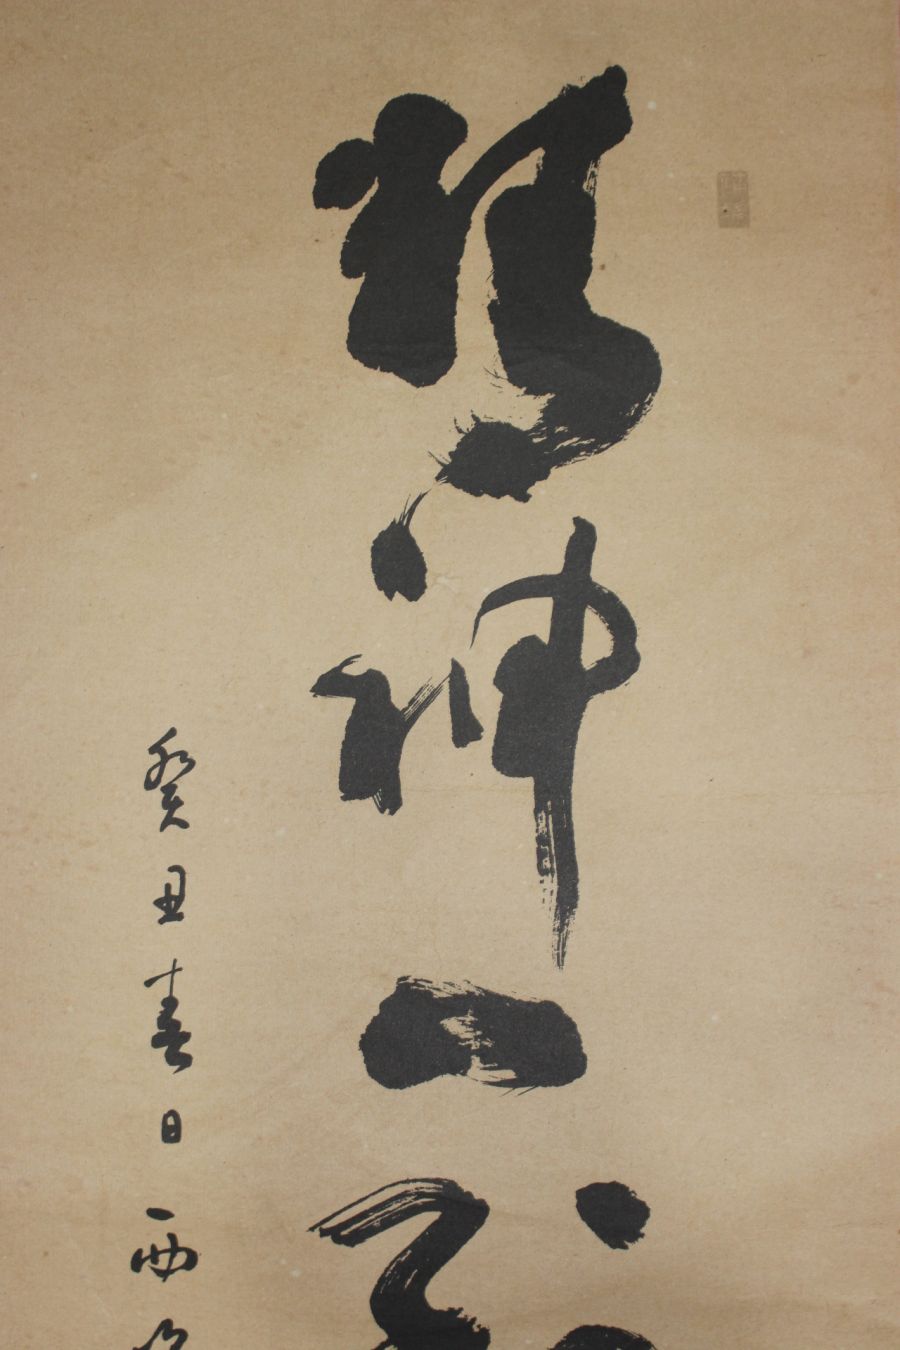 精神一
癸丑春日西